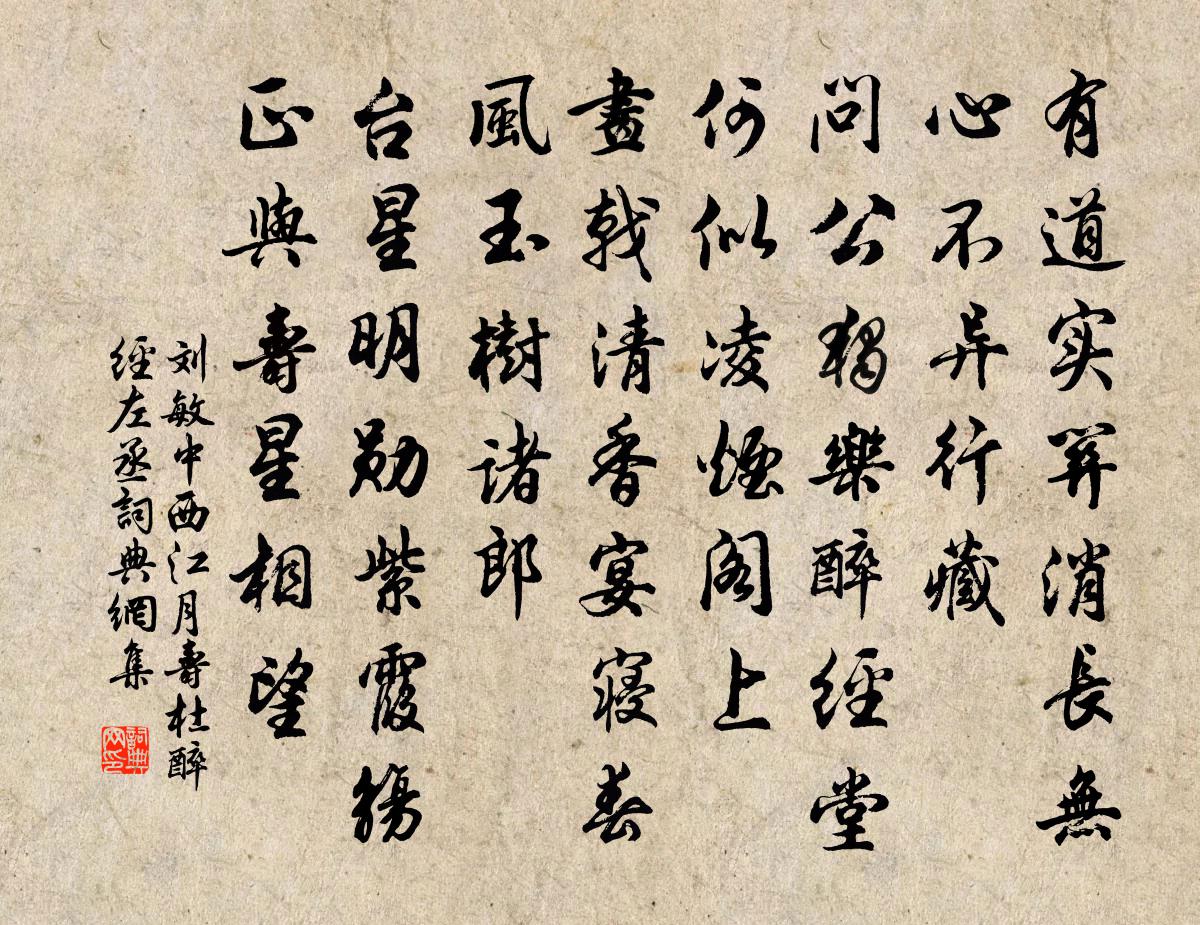 有道实关消長無
心不异行藏
問公獨樂醉經堂
何似凌煙阁上
畫戟清香宴寝春
風玉樹諸郎
台星明勋紫霞觴
正與壽星相望
刘敏中西江月壽杜醉
經左丞詞典網集
詞典網印